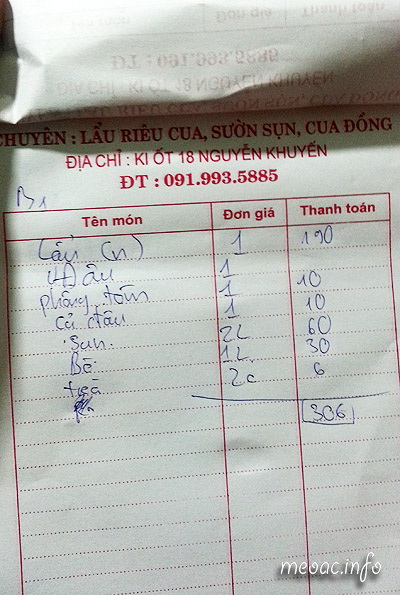 CHUYÊN : LẨU RIÊU CUA, SƯỜN SỤN, CUA ĐỒNG
ĐỊA CHỈ : KI ỐT 18 NGUYỄN KHUYẾN
ĐT : 091.993.5885
B1
Tên món Đơn giá Thanh toán
Lẩu (n) 1 190
Đậu 1 10
phồng tôm 1 10
củ đậu 1
Sụn 2L 60
Bò 1L 30
trà 2c 6
306
meoac.info